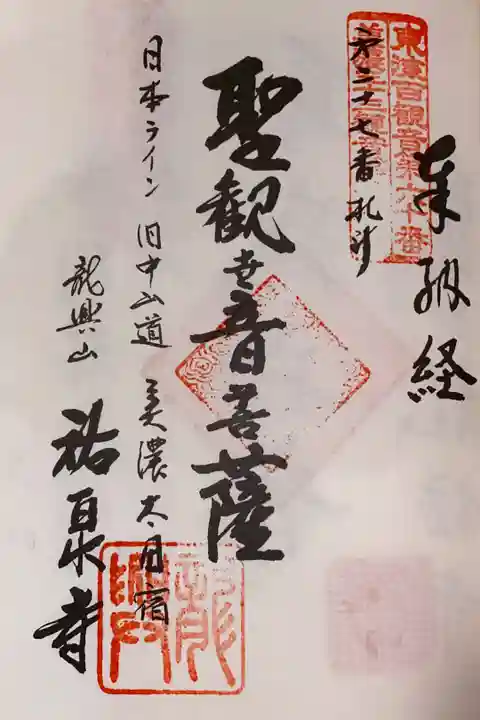 奉納経
東濃百観音第六十番
美濃三十三観音
第二十七番札所
聖観世音菩薩
日本ライン 旧中山道 美濃太田宿
龍興山 祐泉寺
龍興